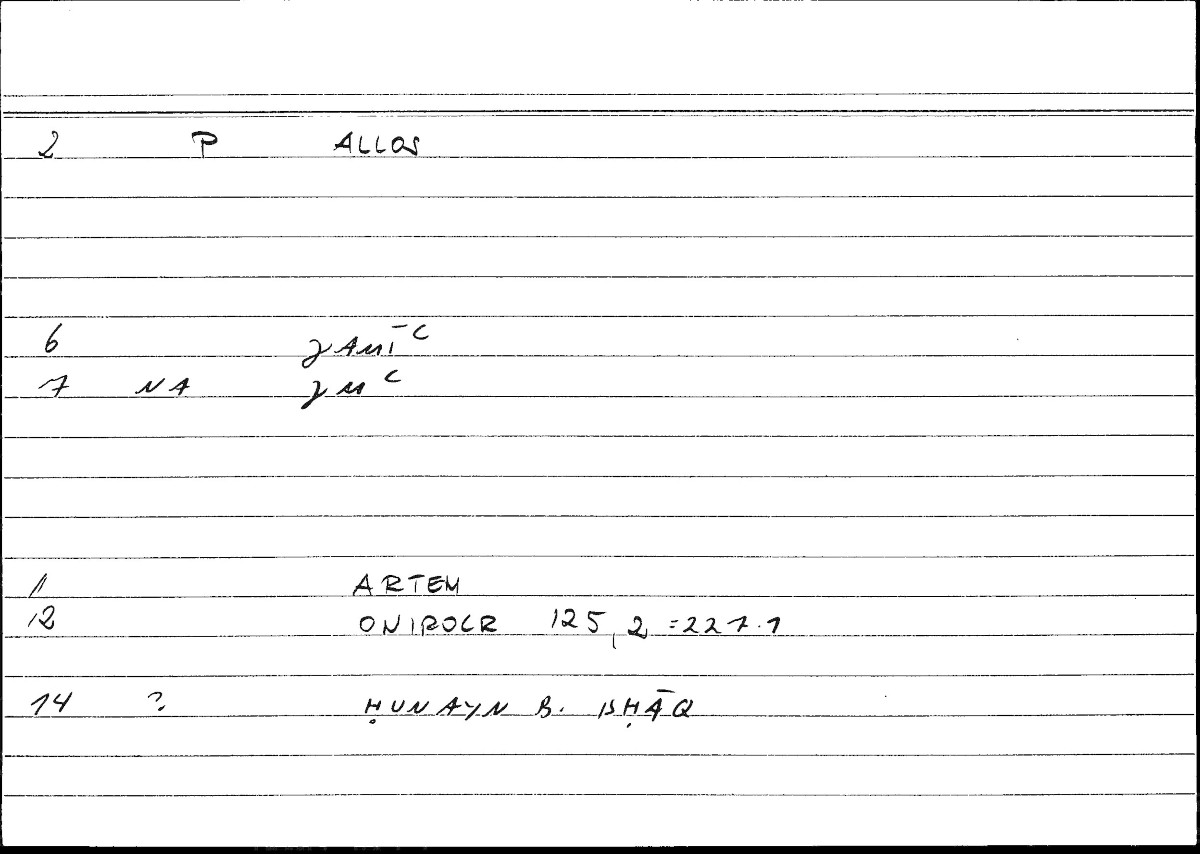 2 P ALLOS
6 ǦAMĪʿ
7 NA ǦMʿ
11 ARTEM
12 ONIROCR 125,2 =227.1
14 ? ḤUNAYN B. ISḤĀQ